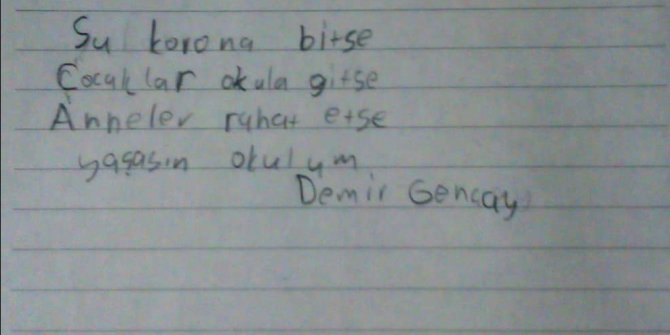 Su korona bitse
Çocuklar okula gitse
Anneler rahat etse
yaşasın okulum
Demir Gencay